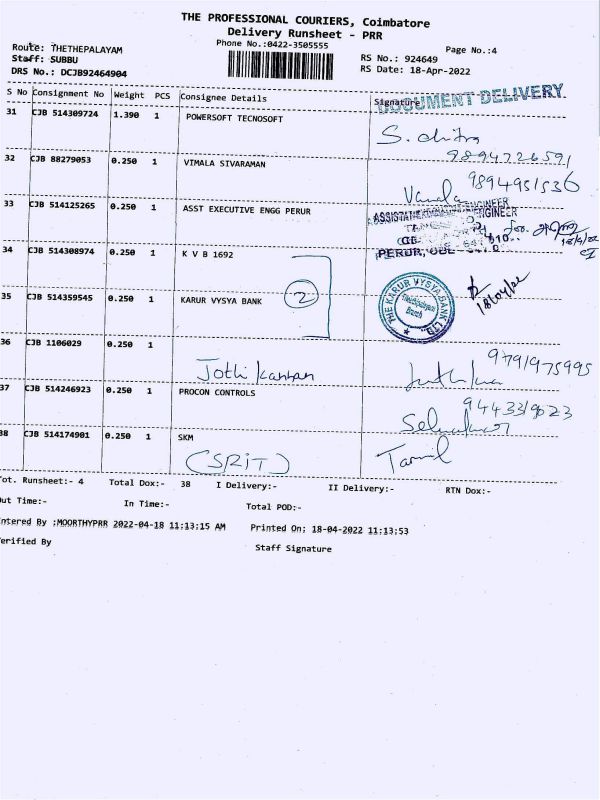 THE PROFESSIONAL COURIERS, Coimbatore
Delivery Runsheet - PRR
Phone No.:0422-3505555
Page No.:4
Route: THETHEPALAYAM
Staff: SUBBU
DRS No.: DCJB92464904
RS No.: 924649
RS Date: 18-Apr-2022
S No Consignment No Weight PCS Consignee Details Signature
DOCUMENT DELIVERY
31 CJB 514309724 1.390 1 POWERSOFT TECNOSOFT
S. chitra
9894726591
32 CJB 88279053 0.250 1 VIMALA SIVARAMAN
9894951536
33 CJB 514125265 0.250 1 ASST EXECUTIVE ENGG PERUR
34 CJB 514308974 0.250 1 K V B 1692
2
THE KARUR VYSYA BANK LTD
18/04/22
35 CJB 514359545 0.250 1 KARUR VYSYA BANK
36 CJB 1106029 0.250 1
Jothi kannan
9791975995
37 CJB 514246923 0.250 1 PROCON CONTROLS
38 CJB 514174901 0.250 1 SKM
(SRIT)
Tamil
Tot. Runsheet:- 4 Total Dox:- 38 I Delivery:- II Delivery:- RTN Dox:-
Out Time:- In Time:- Total POD:-
Entered By :MOORTHYPRR 2022-04-18 11:13:15 AM Printed On: 18-04-2022 11:13:53
Verified By Staff Signature